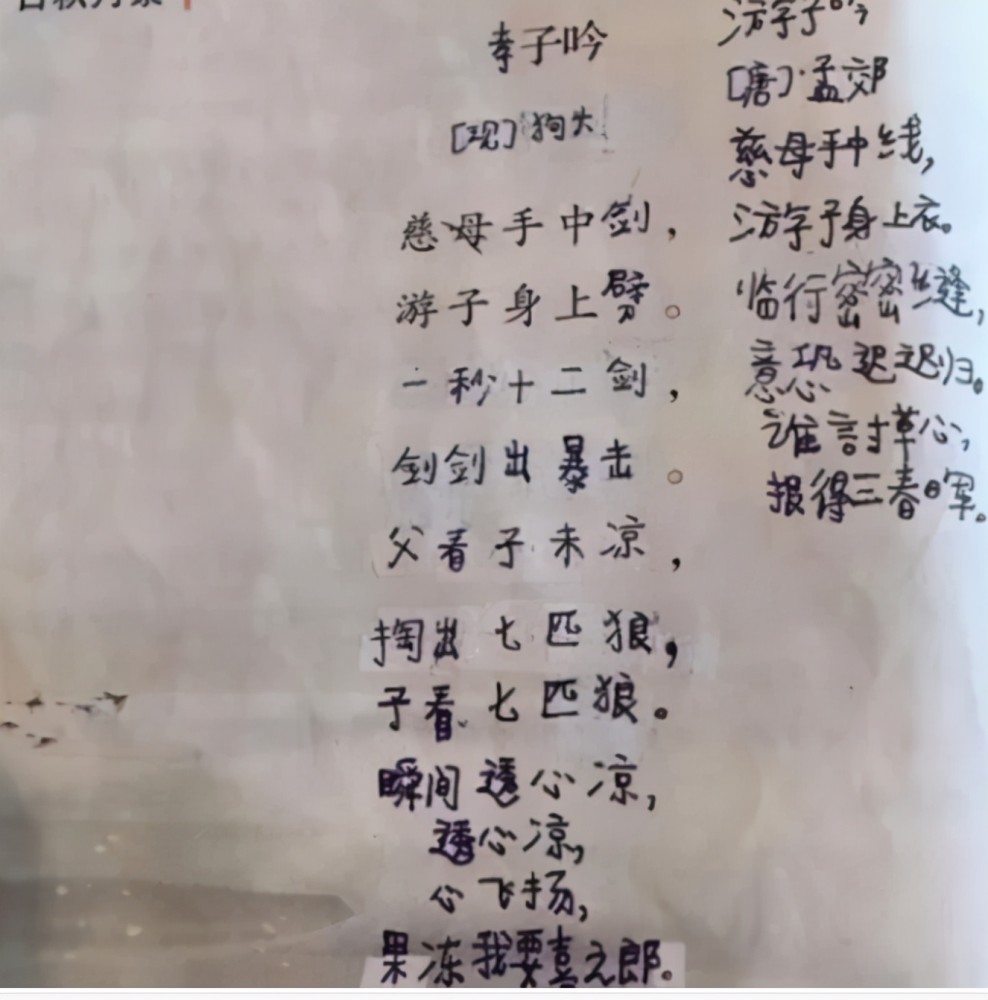 孝子吟
[现]狗头
慈母手中剑，
游子身上劈。
一秒十二剑，
剑剑出暴击。
父看子未凉，
掏出七匹狼，
子看七匹狼。
瞬间透心凉，
透心凉，
心飞扬，
果冻我要喜之郎。
游子吟
[唐]孟郊
慈母手中线，
游子身上衣。
临行密密缝，
意恐迟迟归。
谁言寸草心，
报得三春晖。